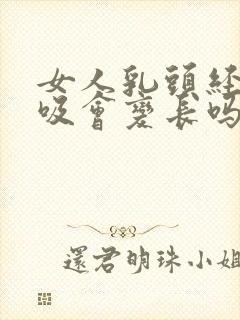 女人乳頭經
吸會變長嗎
還君明珠小姐